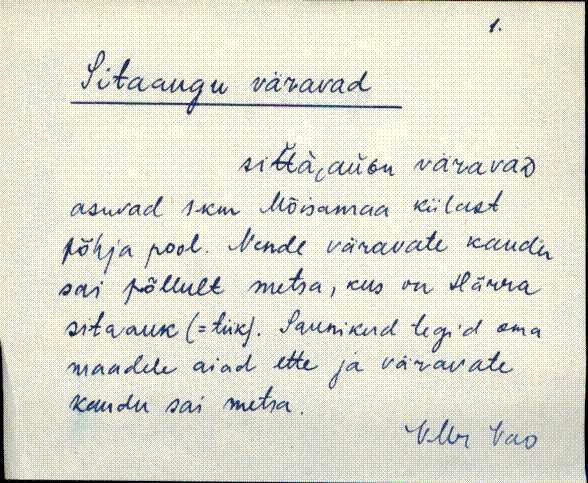 1.
Sitaaugu väravad
väravaD
asuvad 1 km Mõisamaa külast
põhja pool. Nende väravate kaudu
sai põllult metsa, kus on Härra
sitaauk (= tiik). Saunikud tegid oma
maadele aiad ette ja väravate
kaudu sai metsa.
Vao